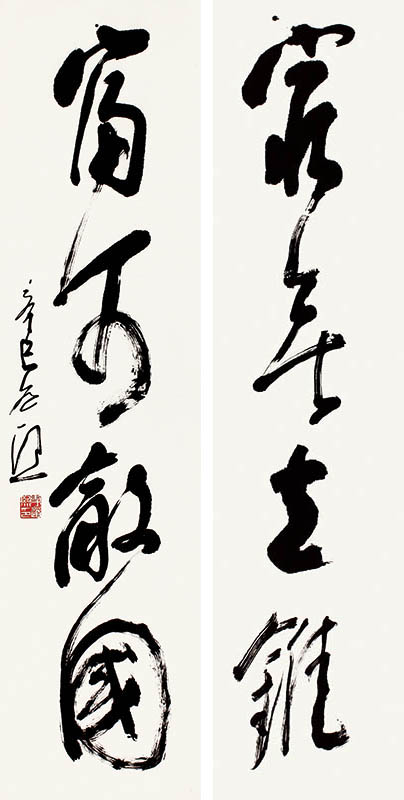 窮無立錐
富可敵國
辛巳